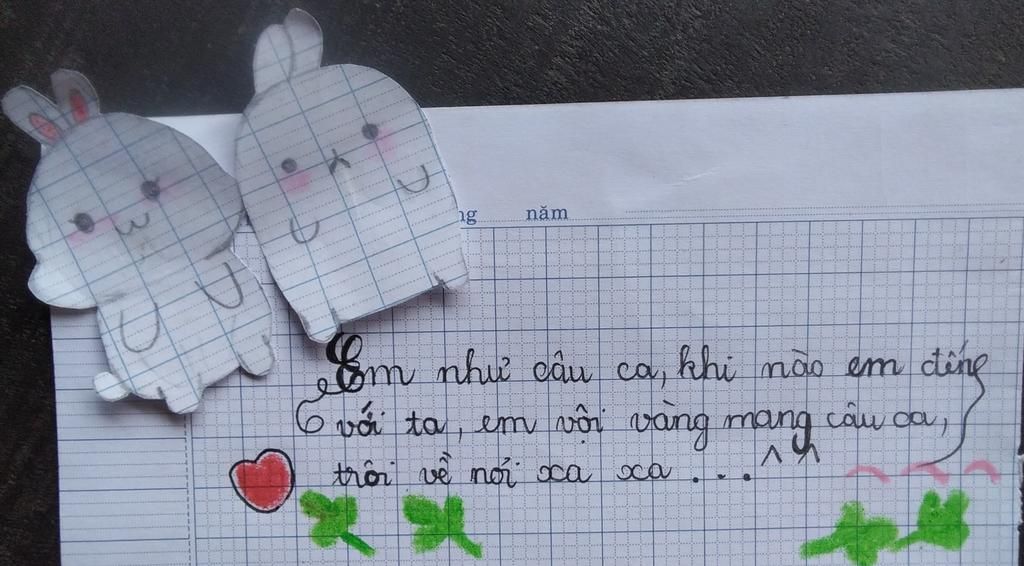 ng năm
Em như câu ca, khi nào em đếng
với ta, em vội vàng mang câu ca,
trôi về nơi xa xa ... ^ ^